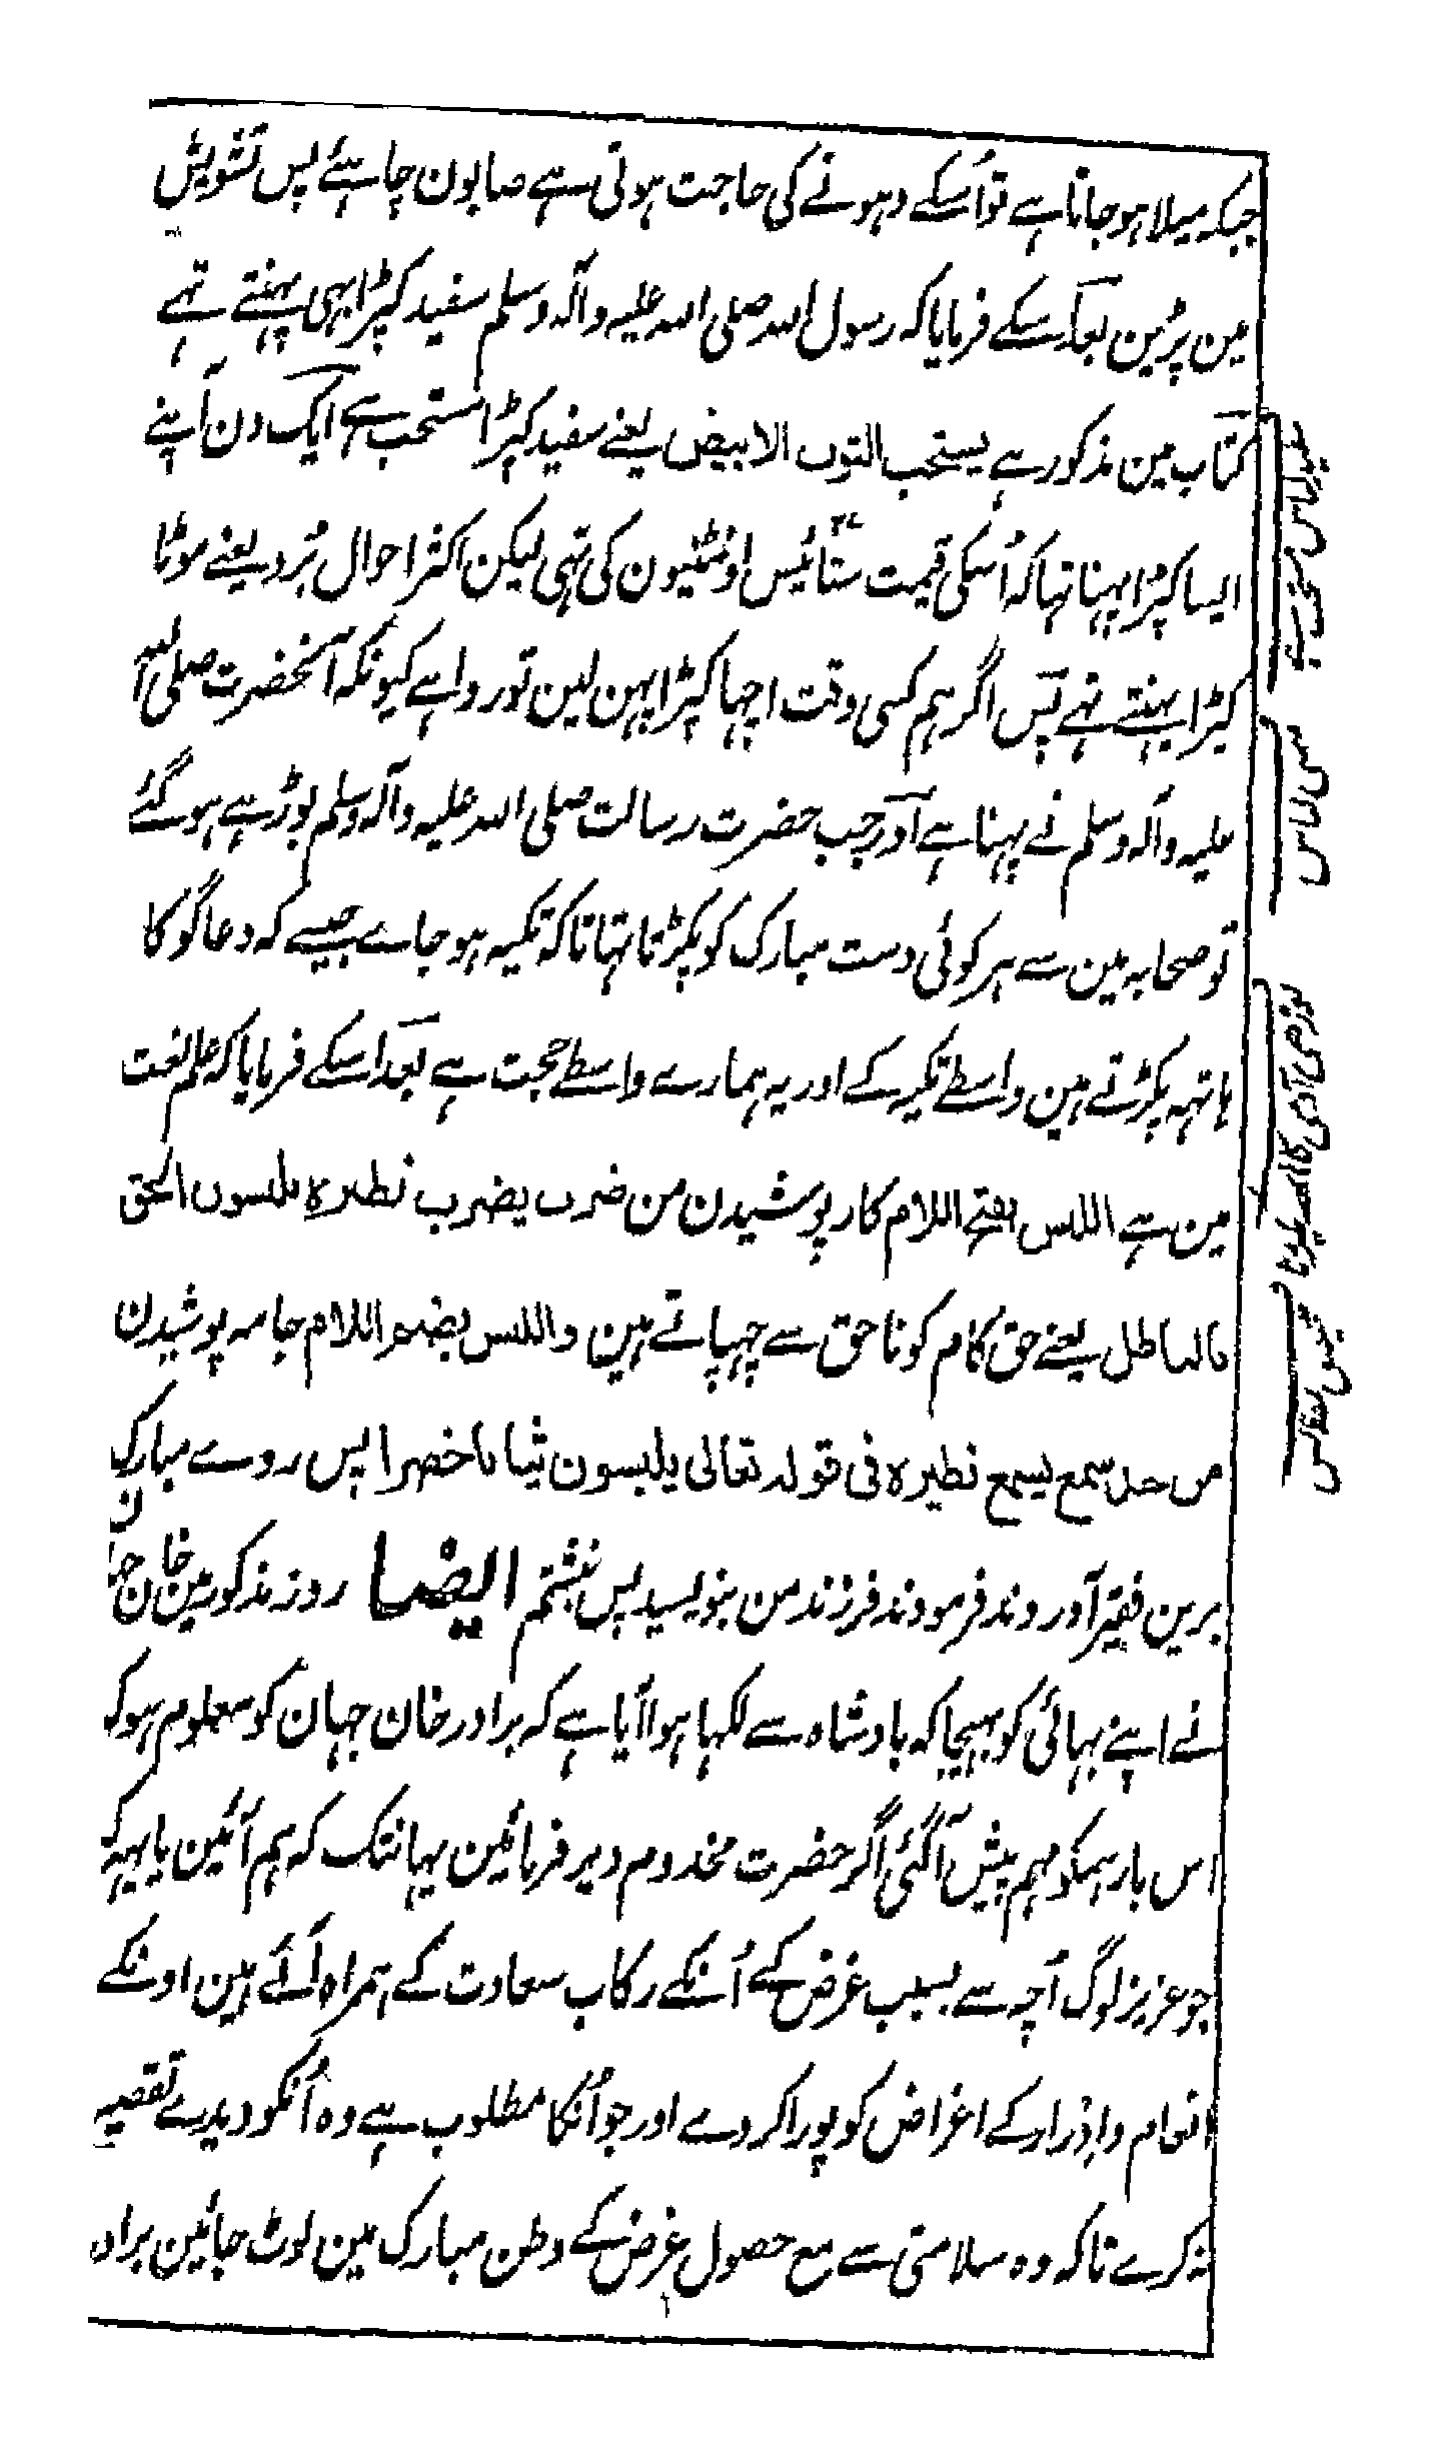 جبکہ میلا ہوجاتا ہے تو اُسکے دہونے کی حاجت ہوتی ہے صابون چاہئے پس تشویش
مین پڑین بعد اُسکے فرمایا کہ رسول اللہ صلی اللہ علیہ وآلہ وسلم سفید کپڑا بہی پہنتے تہے
کتاب مین مذکور ہے یستحب الثوب الابیض یعنے سفید کپڑا مستحب ہے ایک دن آپنے
ایسا کپڑا پہنا تہا کہ اُسکی قیمت ستائیس اونٹنیون کی تہی لیکن اکثر احوال بُرد یعنے موٹا
کپڑا پہنتے تہے پس اگر ہم کسی وقت اچہا کپڑا پہن لین تو روا ہے کیونکہ آنحضرت صلی اللہ
علیہ وآلہ وسلم نے پہنا ہے اور جب حضرت رسالت صلی اللہ علیہ وآلہ وسلم بوڑہے ہوگئے
تو صحابہ مین سے ہر کوئی دست مبارک کو پکڑتا تہا تاکہ تکیہ ہوجاے جیسے کہ دعاگو کا
ہاتہہ پکڑتے ہین واسطے تکیہ کے اور یہ ہمارے واسطے حجت ہے بعد اسکے فرمایا کہ علم لغت
مین ہے اللبس بفتح اللام کار پوشیدن من ضرب یضرب نظیرہ یلبسون الحق
بالباطل یعنے حق کام کو ناحق سے چہپاتے ہین واللبس بضم اللام جامہ پوشیدن
من حد سمع یسمع نظیرہ فی قولہ تعالی یلبسون ثیابا خضرا پس روے مبارک
برین فقیر آوردند فرمودند فرزند من بنویسید پس نبشتم ایضا روز مذکور مین خان جہان
نے اپنے بہائی کو بہیجا کہ بادشاہ سے لکہا ہوا آیا ہے کہ برادر خان جہان کو معلوم ہو کہ
اس بار ہمکو مہم پیش آگئی اگر حضرت مخدوم دیر فرمائین یہانتک کہ ہم آئین یا یہہ کہ
جو عزیز لوگ اُچہ سے بسبب غرض کے اُنکے رکاب سعادت کے ہمراہ آئے ہین اونکے
انعام وادرار کے اغراض کو پورا کردے اور جو اُنکا مطلوب ہے وہ اُنکو دیدے تقصیر
نہ کرے تاکہ وہ سلامتی سے مع حصول غرض کے وطن مبارک مین لوٹ جائین براہ